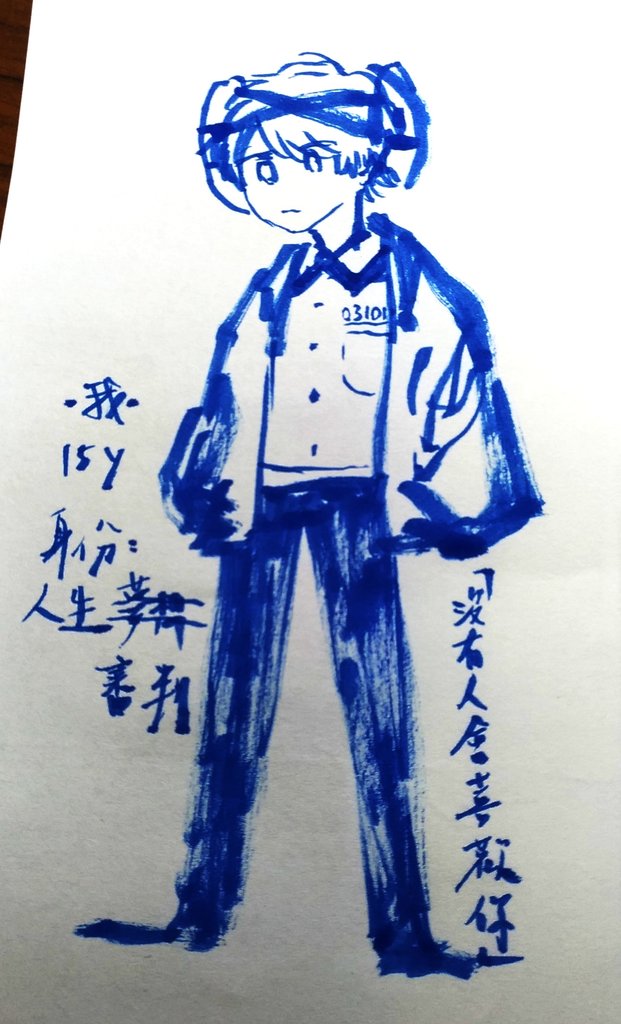 03101
·我·
15y
身份：
人生
審判
「没有人會喜歡你」